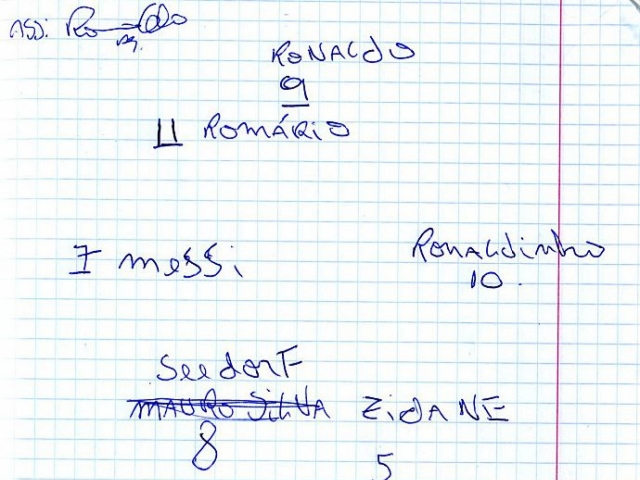 ASS:
RONALDO
9
11 ROMÁRIO
7 messi
RONALdinho
10.
SeedorF
MAURO SiLVA ZidANE
8
5